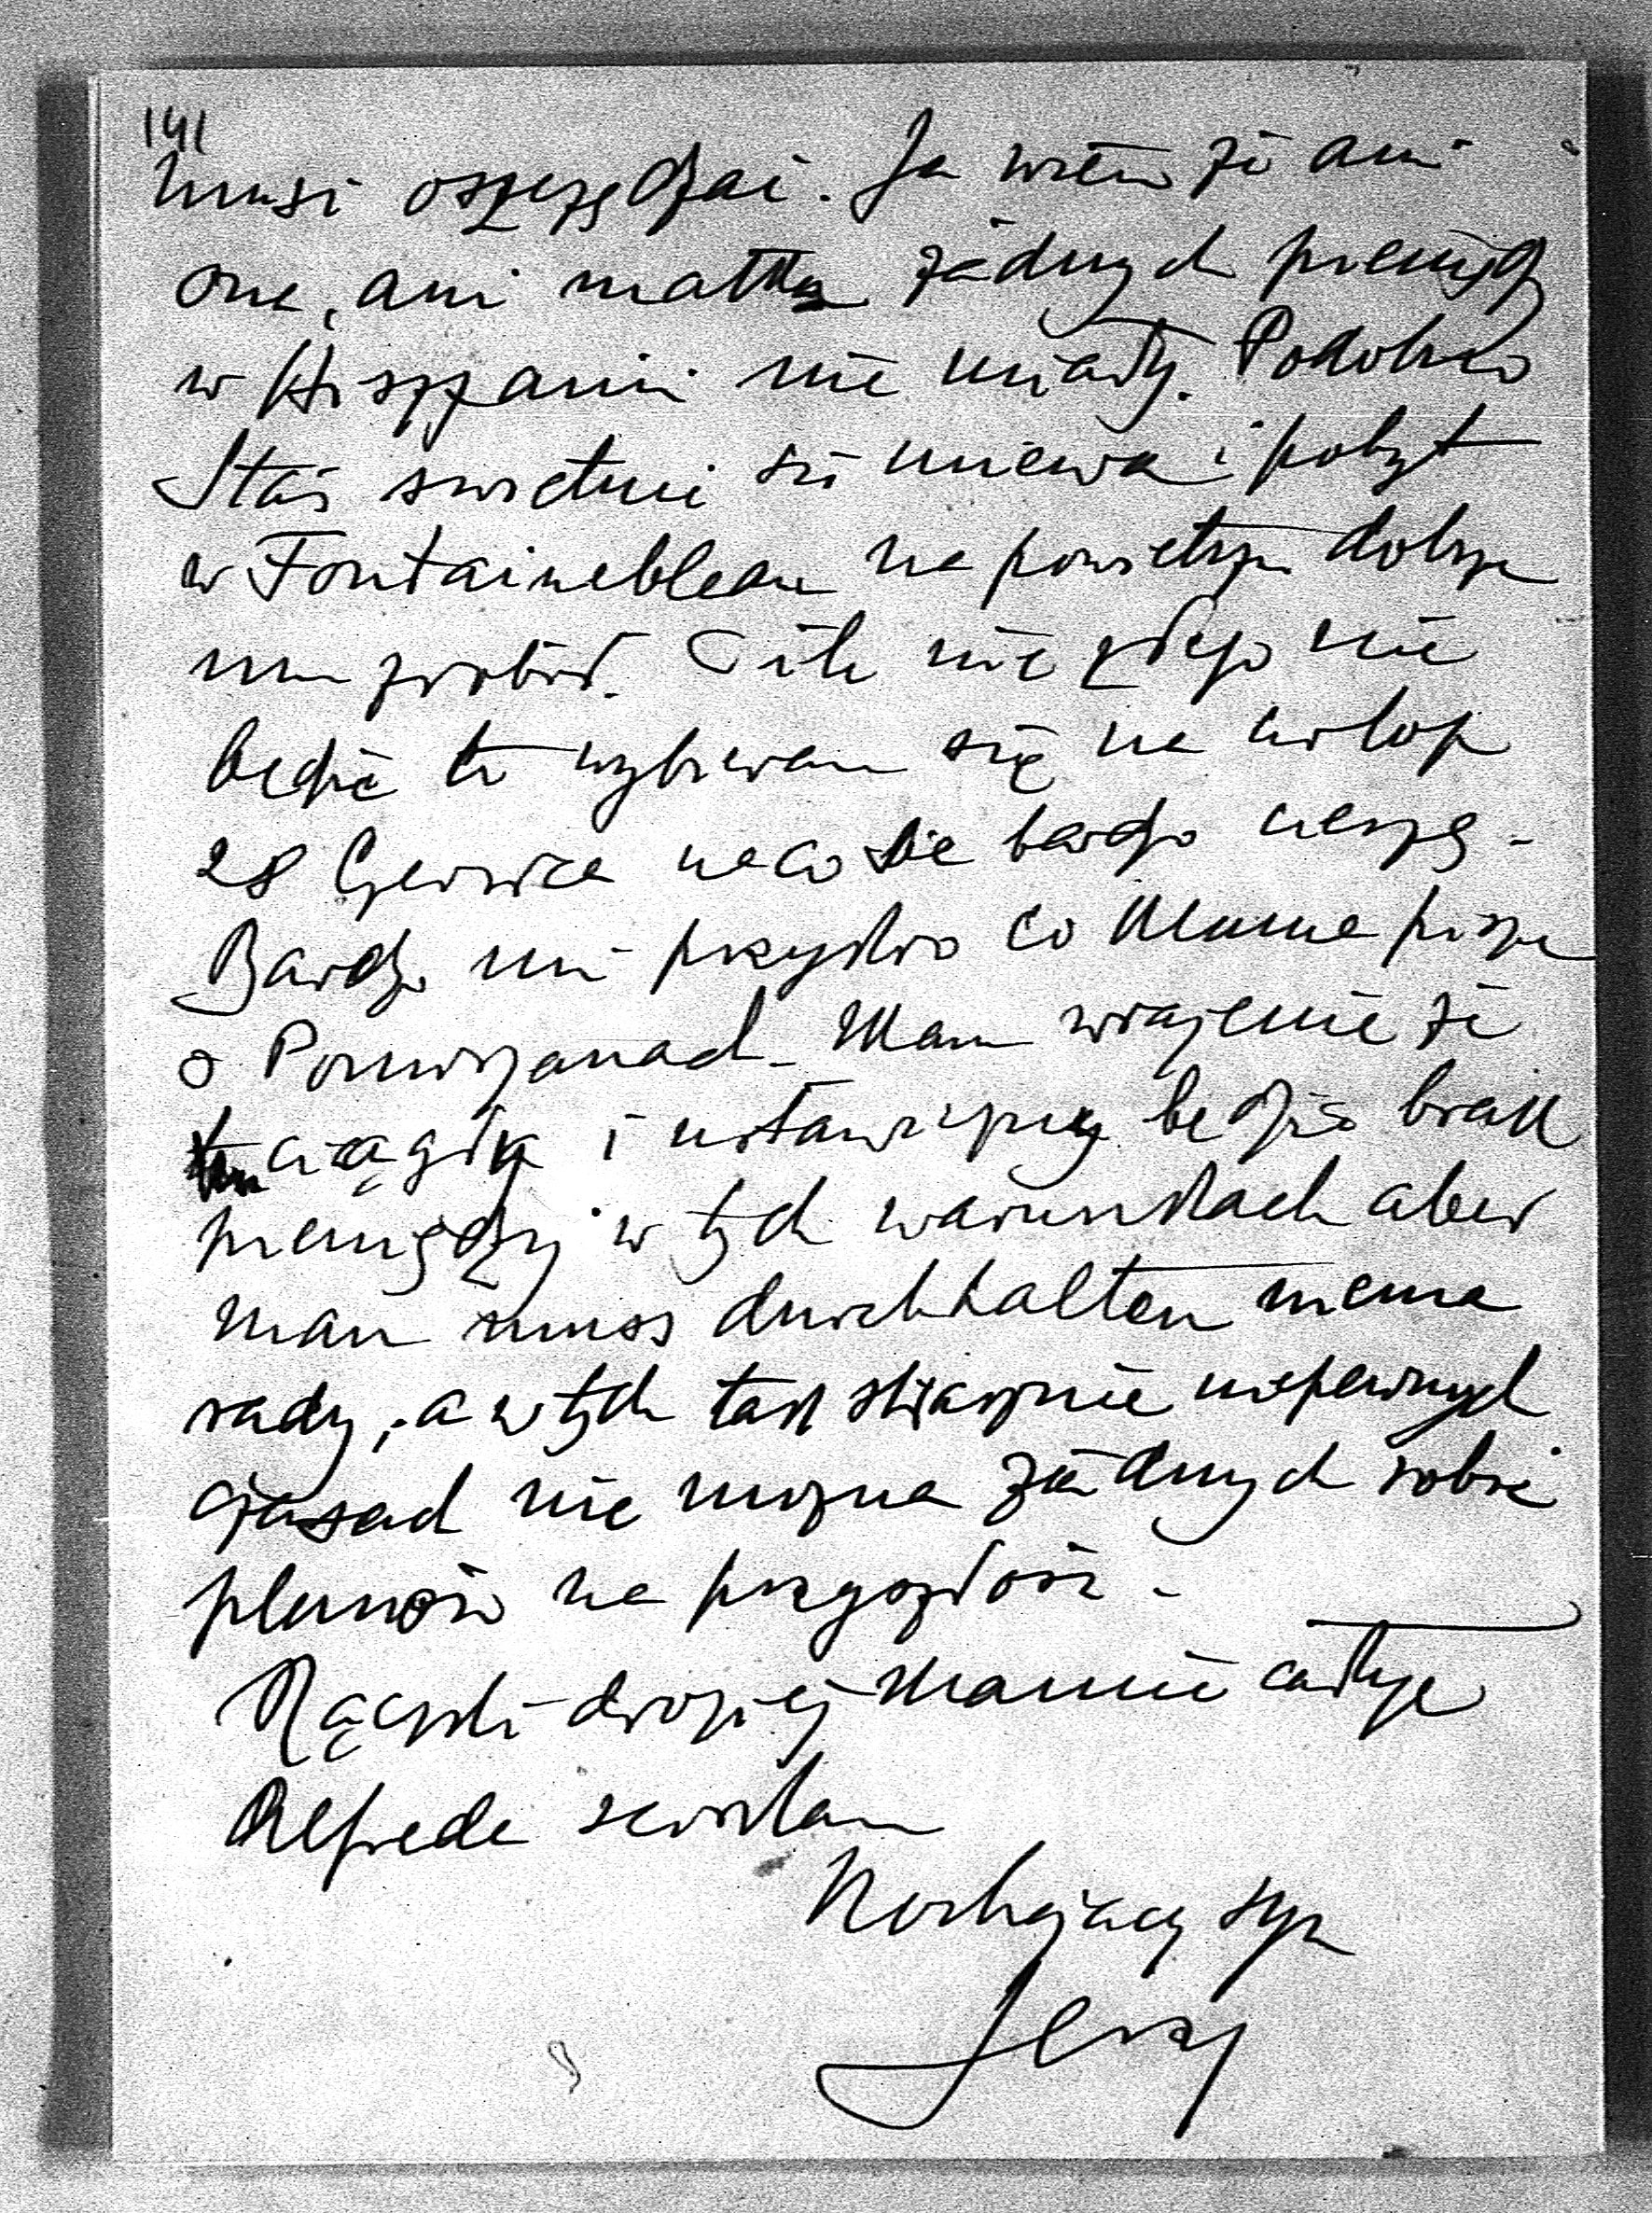 141
musi oszczędzać. Ja wiem że ani
ona, ani matka żadnych pieniędzy
w Hiszpanii nie miały. Podobno
Staś świetnie się miewa i pobyt
w Fontainebleau na powietrzu dobrze
mu zrobił. O ile nic złego nie
będzie to wybieram się na urlop
28 Czerwca na co się bardzo cieszę -
Bardzo mi przykro co Mama pisze
o Pomorzanach - Mam wrażenie że
ciągły i ustawiczny będzie brak
pieniędzy w tych warunkach aber
man muss durchhalten niema
rady, a w tych tak strasznie niepewnych
czasach nie można żadnych robić
planów na przyszłość -
Rączki drogiej Mamie całuję
Alfreda ściskam
Kochający syn
Jerzy